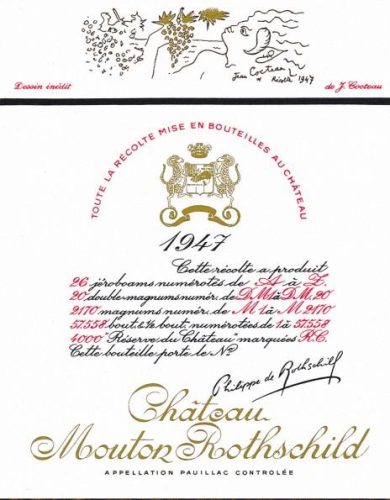 Jean Cocteau
* Récolte 1947
Dessin inédit
de J. Cocteau
TOUTE LA RÉCOLTE MISE EN BOUTEILLES AU CHÂTEAU
1947
Cette récolte a produit
26 jéroboams numérotés de A à Z.
20 double-magnums numér. de D.M.1 à D.M. 20
2170 magnums numér. de M.1 à M.2170
57.558 bout. & ½ bout. numérotées de 1 à 57.558
4000 "Réserve du Château" marquées R.C.
Cette bouteille porte le No
Philippe de Rothschild
Château
Mouton Rothschild
APPELLATION PAUILLAC CONTROLÉE